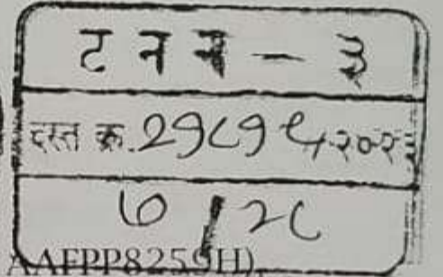 ट न न - ३
दस्त क्र. २१८१९/२०२३
७/२८
AAFPP8259H)